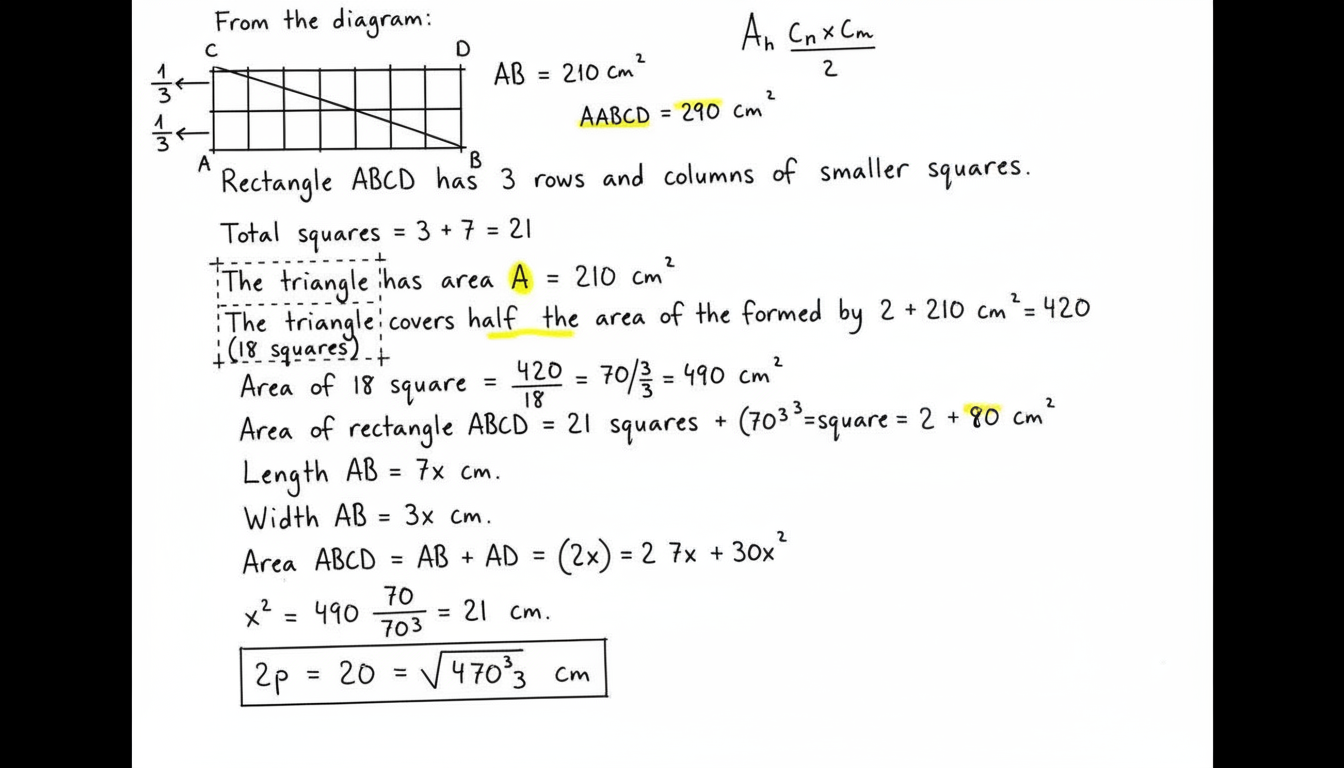 From the diagram:
C D
1/3 ←
1/3 ←
A B
AB = 210 cm²
AABCD = 290 cm²
Aₕ (Cn × Cm)/2
Rectangle ABCD has 3 rows and columns of smaller squares.
Total squares = 3 + 7 = 21
The triangle has area A = 210 cm²
The triangle covers half the area of the formed by 2 + 210 cm² = 420
(18 squares)
Area of 18 square = 420/18 = 70/3/3 = 490 cm²
Area of rectangle ABCD = 21 squares + (70³³=square = 2 + 80 cm²
Length AB = 7x cm.
Width AB = 3x cm.
Area ABCD = AB + AD = (2x) = 2 7x + 30x²
x² = 490 70/703 = 21 cm.
2p = 20 = √470³3 cm